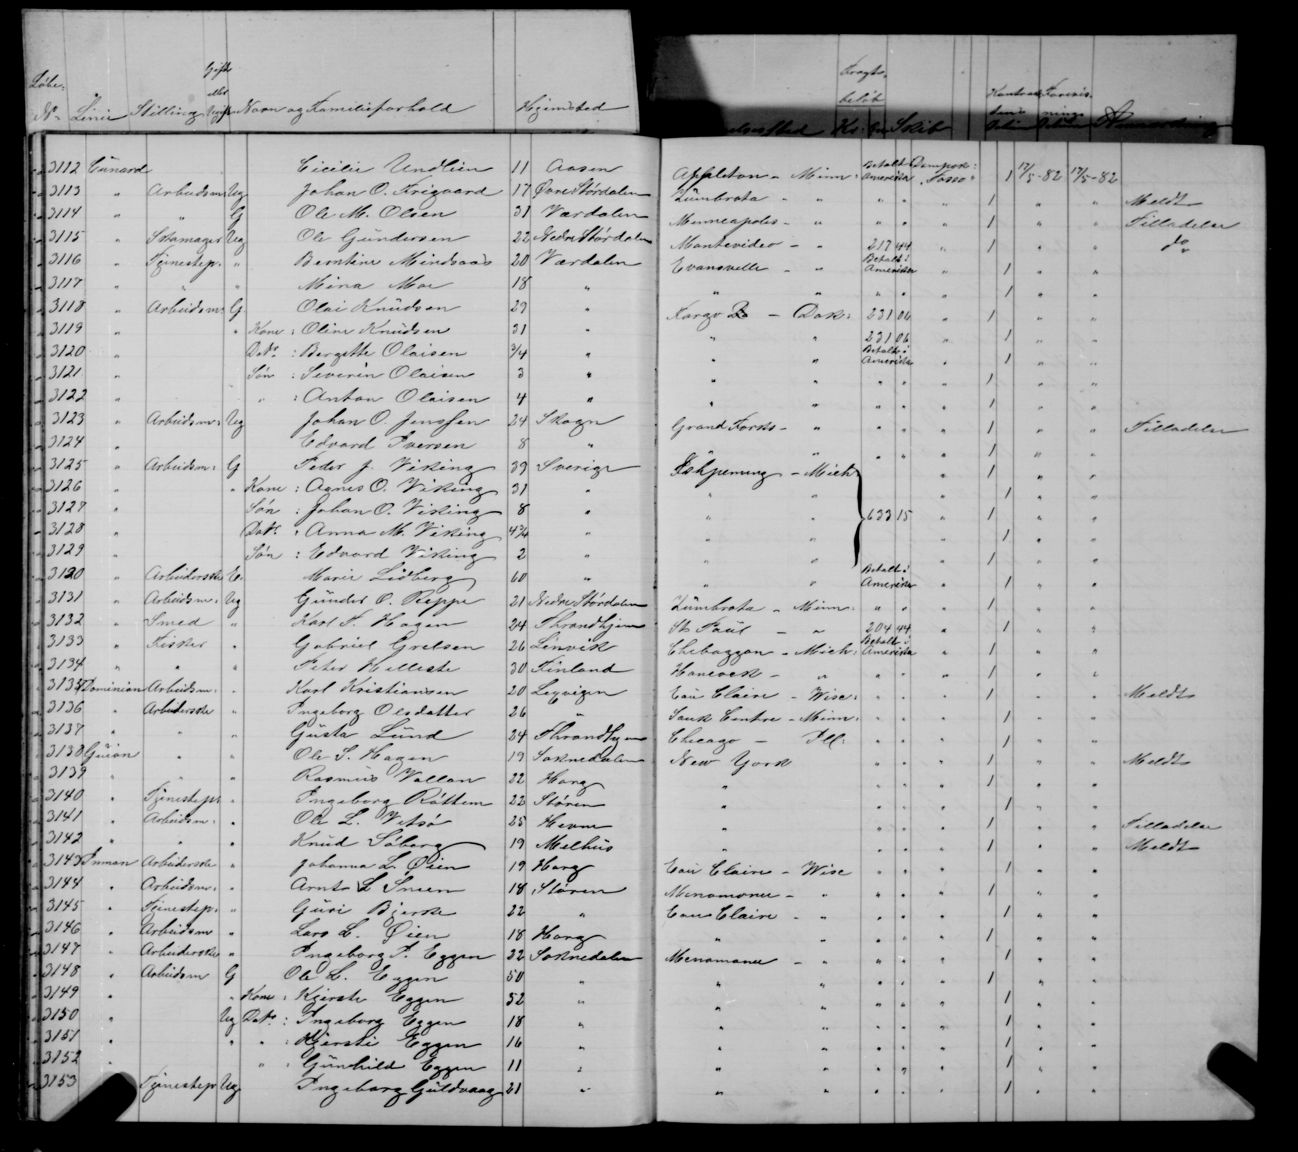 Løbe- No Linie Stilling Gift eller Ugift Navn og Familieforhold Hjemsted Kr. Skib
3112 Cunard Cicilie Undlien 11 Aasen Appleton - Minn: Betalt i Amerika Dampsk: "Tasso" 1 17/5-82 17/5-82
3113 " Arbeidsm Ug Johan O. Krigaard 17 Øvre Størdalen Zumbrota " " " " " 1 " " Meldt
3114 " " G Ole M. Olsen 31 Værdalen Minneapolis - " " " " 1 " " Tilladelse
3115 " Ug Ole Gundersen 22 Nedre Størdalen Montevideo - " 217 44 " 1 " " do
3116 " Tjenestep. " Berntine Mindsaas 20 Værdalen Evansville - " Betalt i Amerika " 1 " "
3117 " " " Mina Moe 18 " " " " " " 1 " "
3118 " Arbeidsm: G Olai Knudsen 29 " Fargo - Dak: 231 06 " 1 " "
3119 " " Kone: Oline Knudsen 31 " " " 231 06 " 1 " "
3120 " Datr: Bergitte Olaisen 3/4 " " " Betalt i Amerika " 1 " "
3121 " Søn: Severin Olaisen 3 " " " " " " 1 " "
3122 " " : Anton Olaisen 4 " " " " " " 1 " "
3123 " Arbeidsm: Ug Johan O. Jenssen 24 Skogn Grand Forks - " " " " 1 " " Tilladelse
3124 " Edvard Iversen 8 " " " " " " 1 " "
3125 " Arbeidsm: G Peter J. Viking 39 Sverige Ishpeming - Mich: " 1 " "
3126 " " Kone: Agnes O. Viking 31 " " " " 1 " "
3127 " Søn: Johan O. Viking 8 " " " 633 15 " 1 " "
3128 " Datr: Anna M. Viking 4 3/4 " " " " 1 " "
3129 " Søn: Edvard Viking 2 " " " " 1 " "
3130 " Arbeiderske E. Marie Lidberg 60 " " " Betalt i Amerika " 1 " "
3131 " Arbeidsm: Ug Gunder O. Reppe 21 Nedre Størdalen Zumbrota - Minn: " " " 1 " "
3132 " Smed " Karl P. Hagen 24 Throndhjem St. Paul - " 204 44 " 1 " "
3133 " Fisker " Gabriel Gretsen 26 Lenvik Cheboygan - Mich: Betalt i Amerika " 1 " "
3134 " " " Peter Helleste 30 Finland Hancock - " " " " 1 " "
3135 Dominion Arbeidsm: " Karl Kristiansen 20 Lexvigen Eau Claire - Wisc: " " " 1 " " Meldt
3136 " Arbeiderske " Ingeborg Olsdatter 26 " Sauk Centre - Minn: " " " 1 " "
3137 " " " Gusta Lund 24 Throndhjem Chicago - Ill: " " " 1 " "
3138 Guion " " Ole S. Hagen 19 Soknedalen New York " " " 1 " " Meldt
3139 " " " Rasmus Vollan 22 Horg " " " " 1 " "
3140 " Tjenestep. " Ingeborg Røttem 22 Støren " " " " 1 " "
3141 " Arbeidsm: " Ole L. Vitsø 25 Hevne " " " " 1 " " Tilladelse
3142 " " " Knud Søberg 19 Melhus " " " " 1 " " Meldt
3143 Inman Arbeiderske " Johanna L. Øien 19 Horg Eau Claire - Wisc " " " 1 " "
3144 " Arbeidsm: " Arnt L Sneen 18 Støren Menomonie - " " " " 1 " "
3145 " Tjenestep. " Guri Bjerke 22 " Eau Claire - " " " " 1 " "
3146 " Arbeidsm " Lars L. Øien 18 Horg " " " " " 1 " "
3147 " Arbeiderske " Ingeborg P. Eggen 22 Soknedalen Menomonie - " " " " 1 " "
3148 " Arbeidsm G Ole L. Eggen 50 " " " " " " 1 " "
3149 " " Kone: Kjersti Eggen 52 " " " " " " 1 " "
3150 " Ug Datr: Ingeborg Eggen 18 " " " " " " 1 " "
3151 " " " : Kjersti Eggen 16 " " " " " " 1 " "
3152 " " : Gunhild Eggen 11 " " " " " " 1 " "
3153 Tjenestep Ug Ingeborg Guldvaag 21 " " " " " " 1 " "